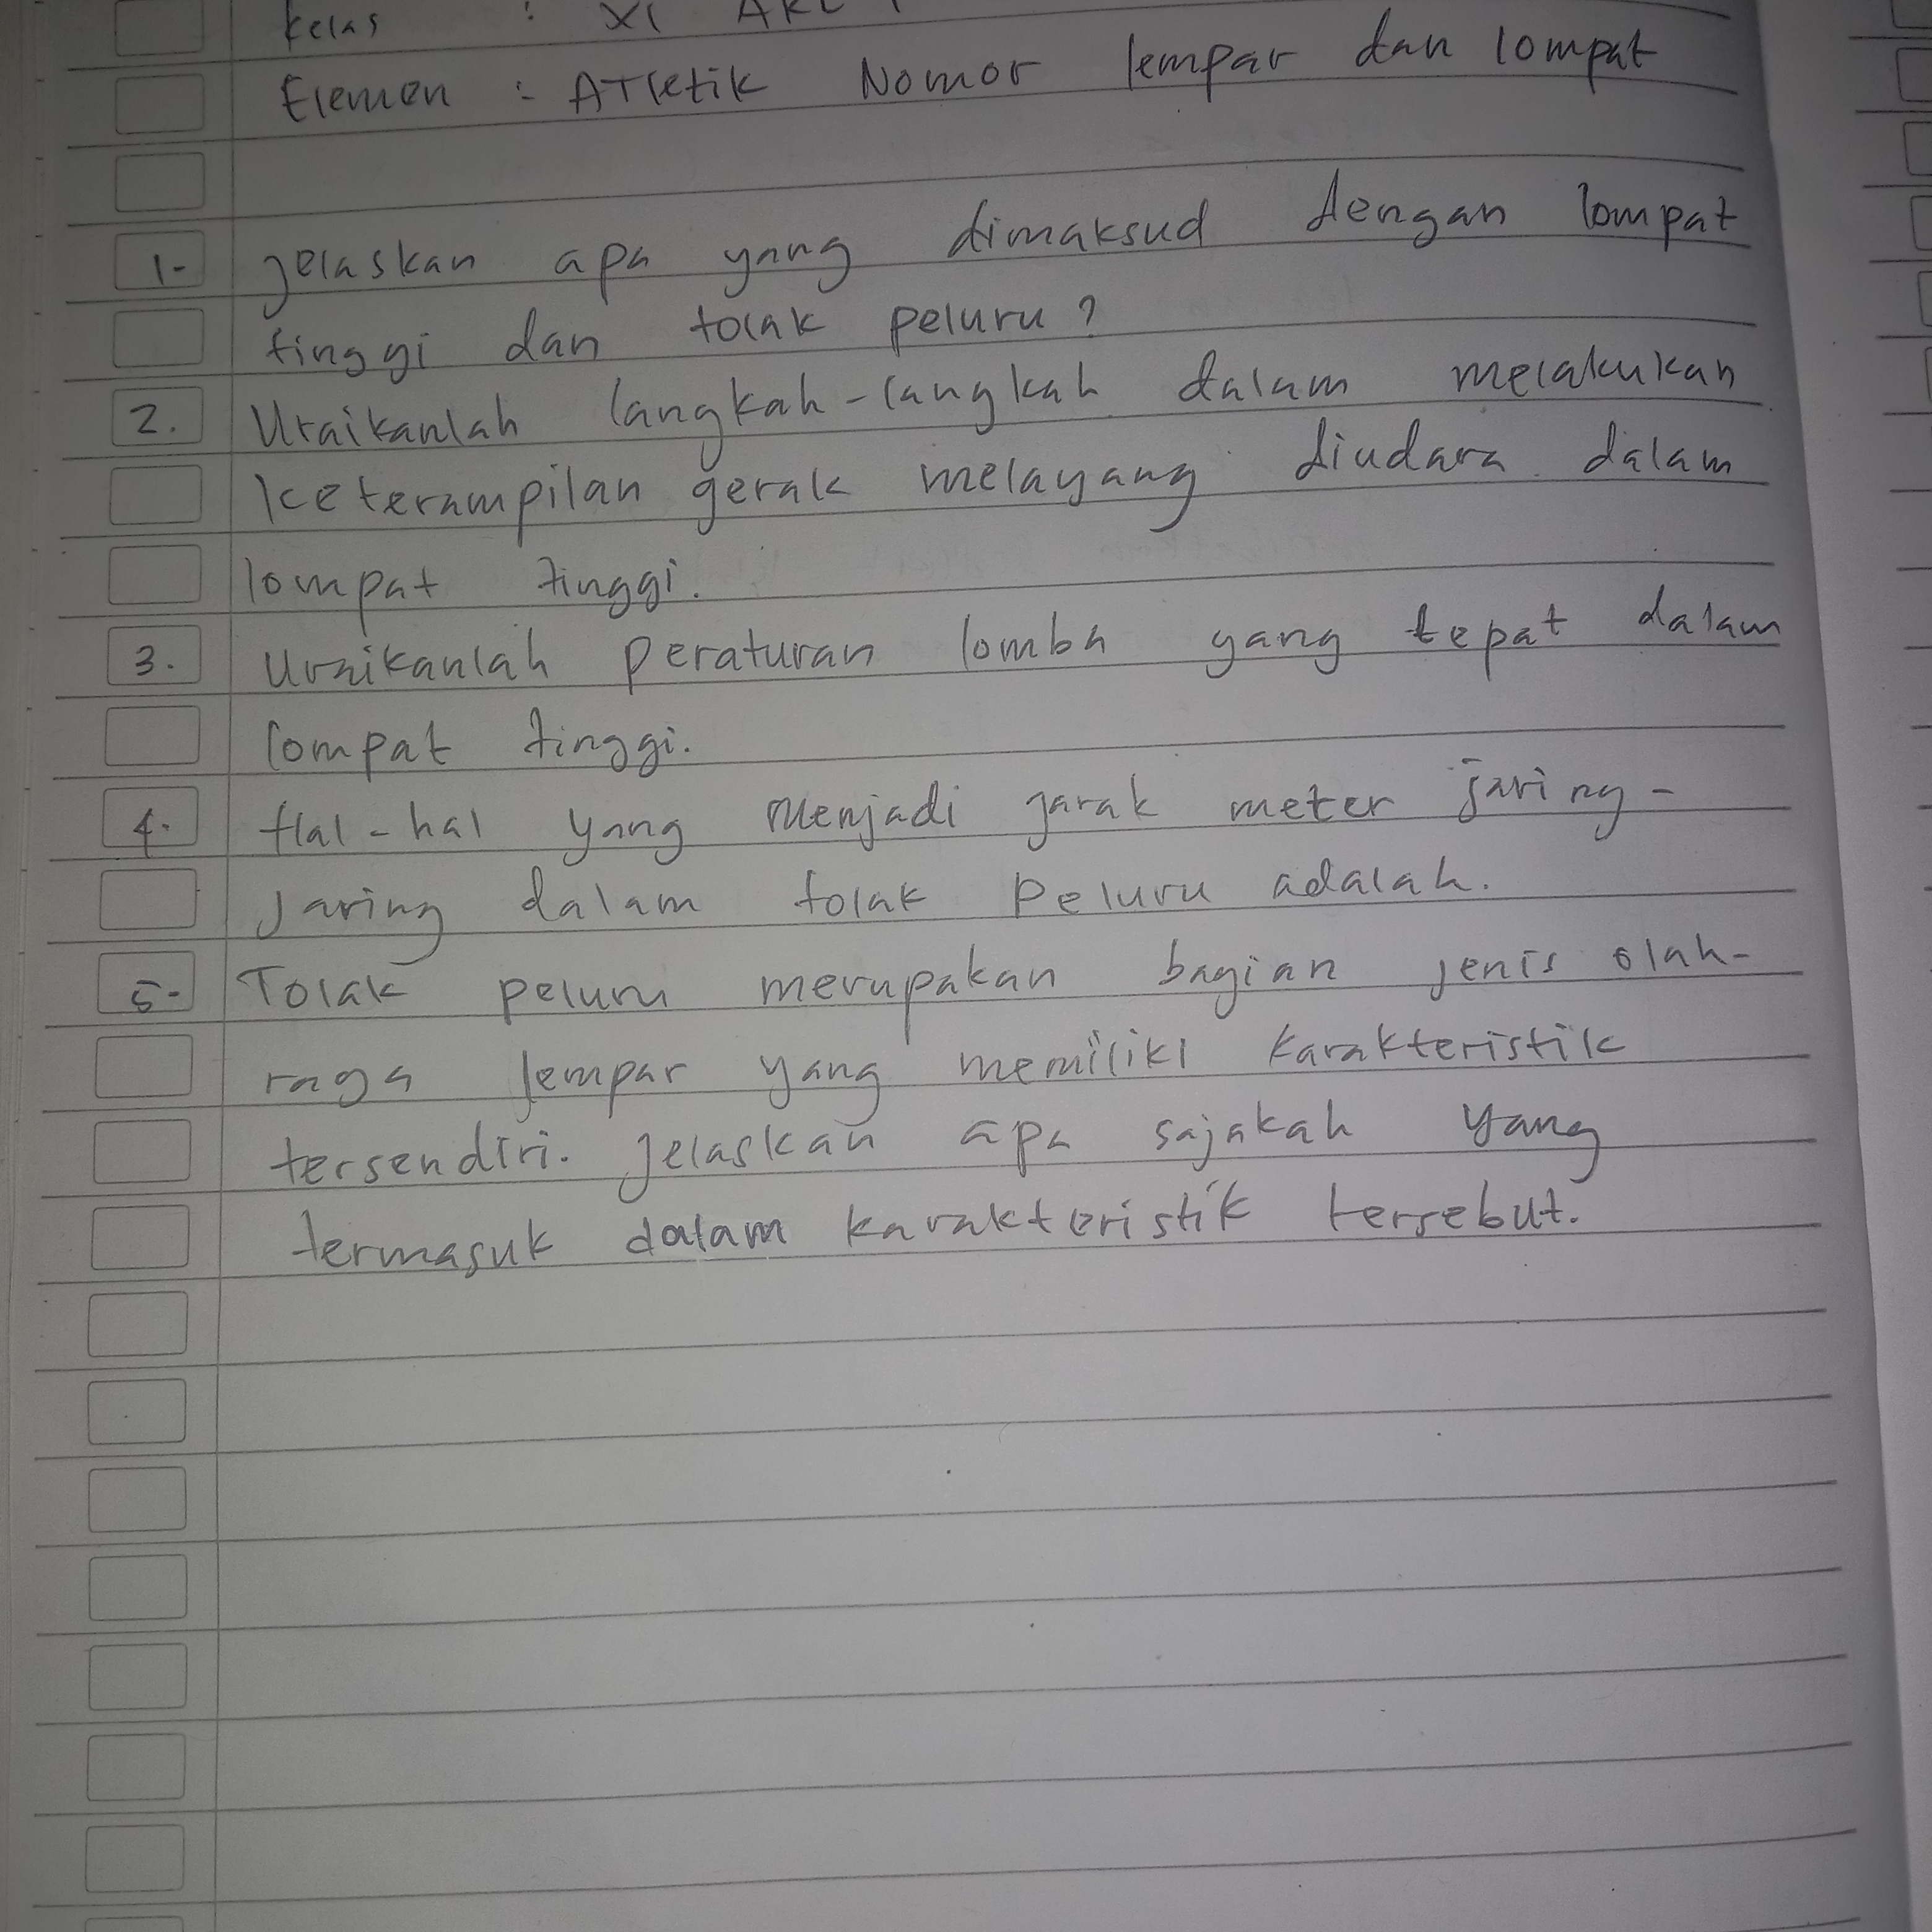 Kelas : XI AKL 1
Elemen : ATletik Nomor lempar dan lompat
1. jelaskan apa yang dimaksud dengan lompat
tinggi dan tolak peluru?
2. Uraikanlah langkah-langkah dalam melakukan
keterampilan gerak melayang diudara dalam
lompat tinggi.
3. uraikanlah peraturan lomba yang tepat dalam
lompat tinggi.
4. Hal-hal yang menjadi jarak meter jaring-
jaring dalam tolak peluru adalah.
5. Tolak peluru merupakan bagian jenis olah-
raga lempar yang memiliki karakteristik
tersendiri. jelaskan apa sajakah yang
termasuk dalam karakteristik tersebut.